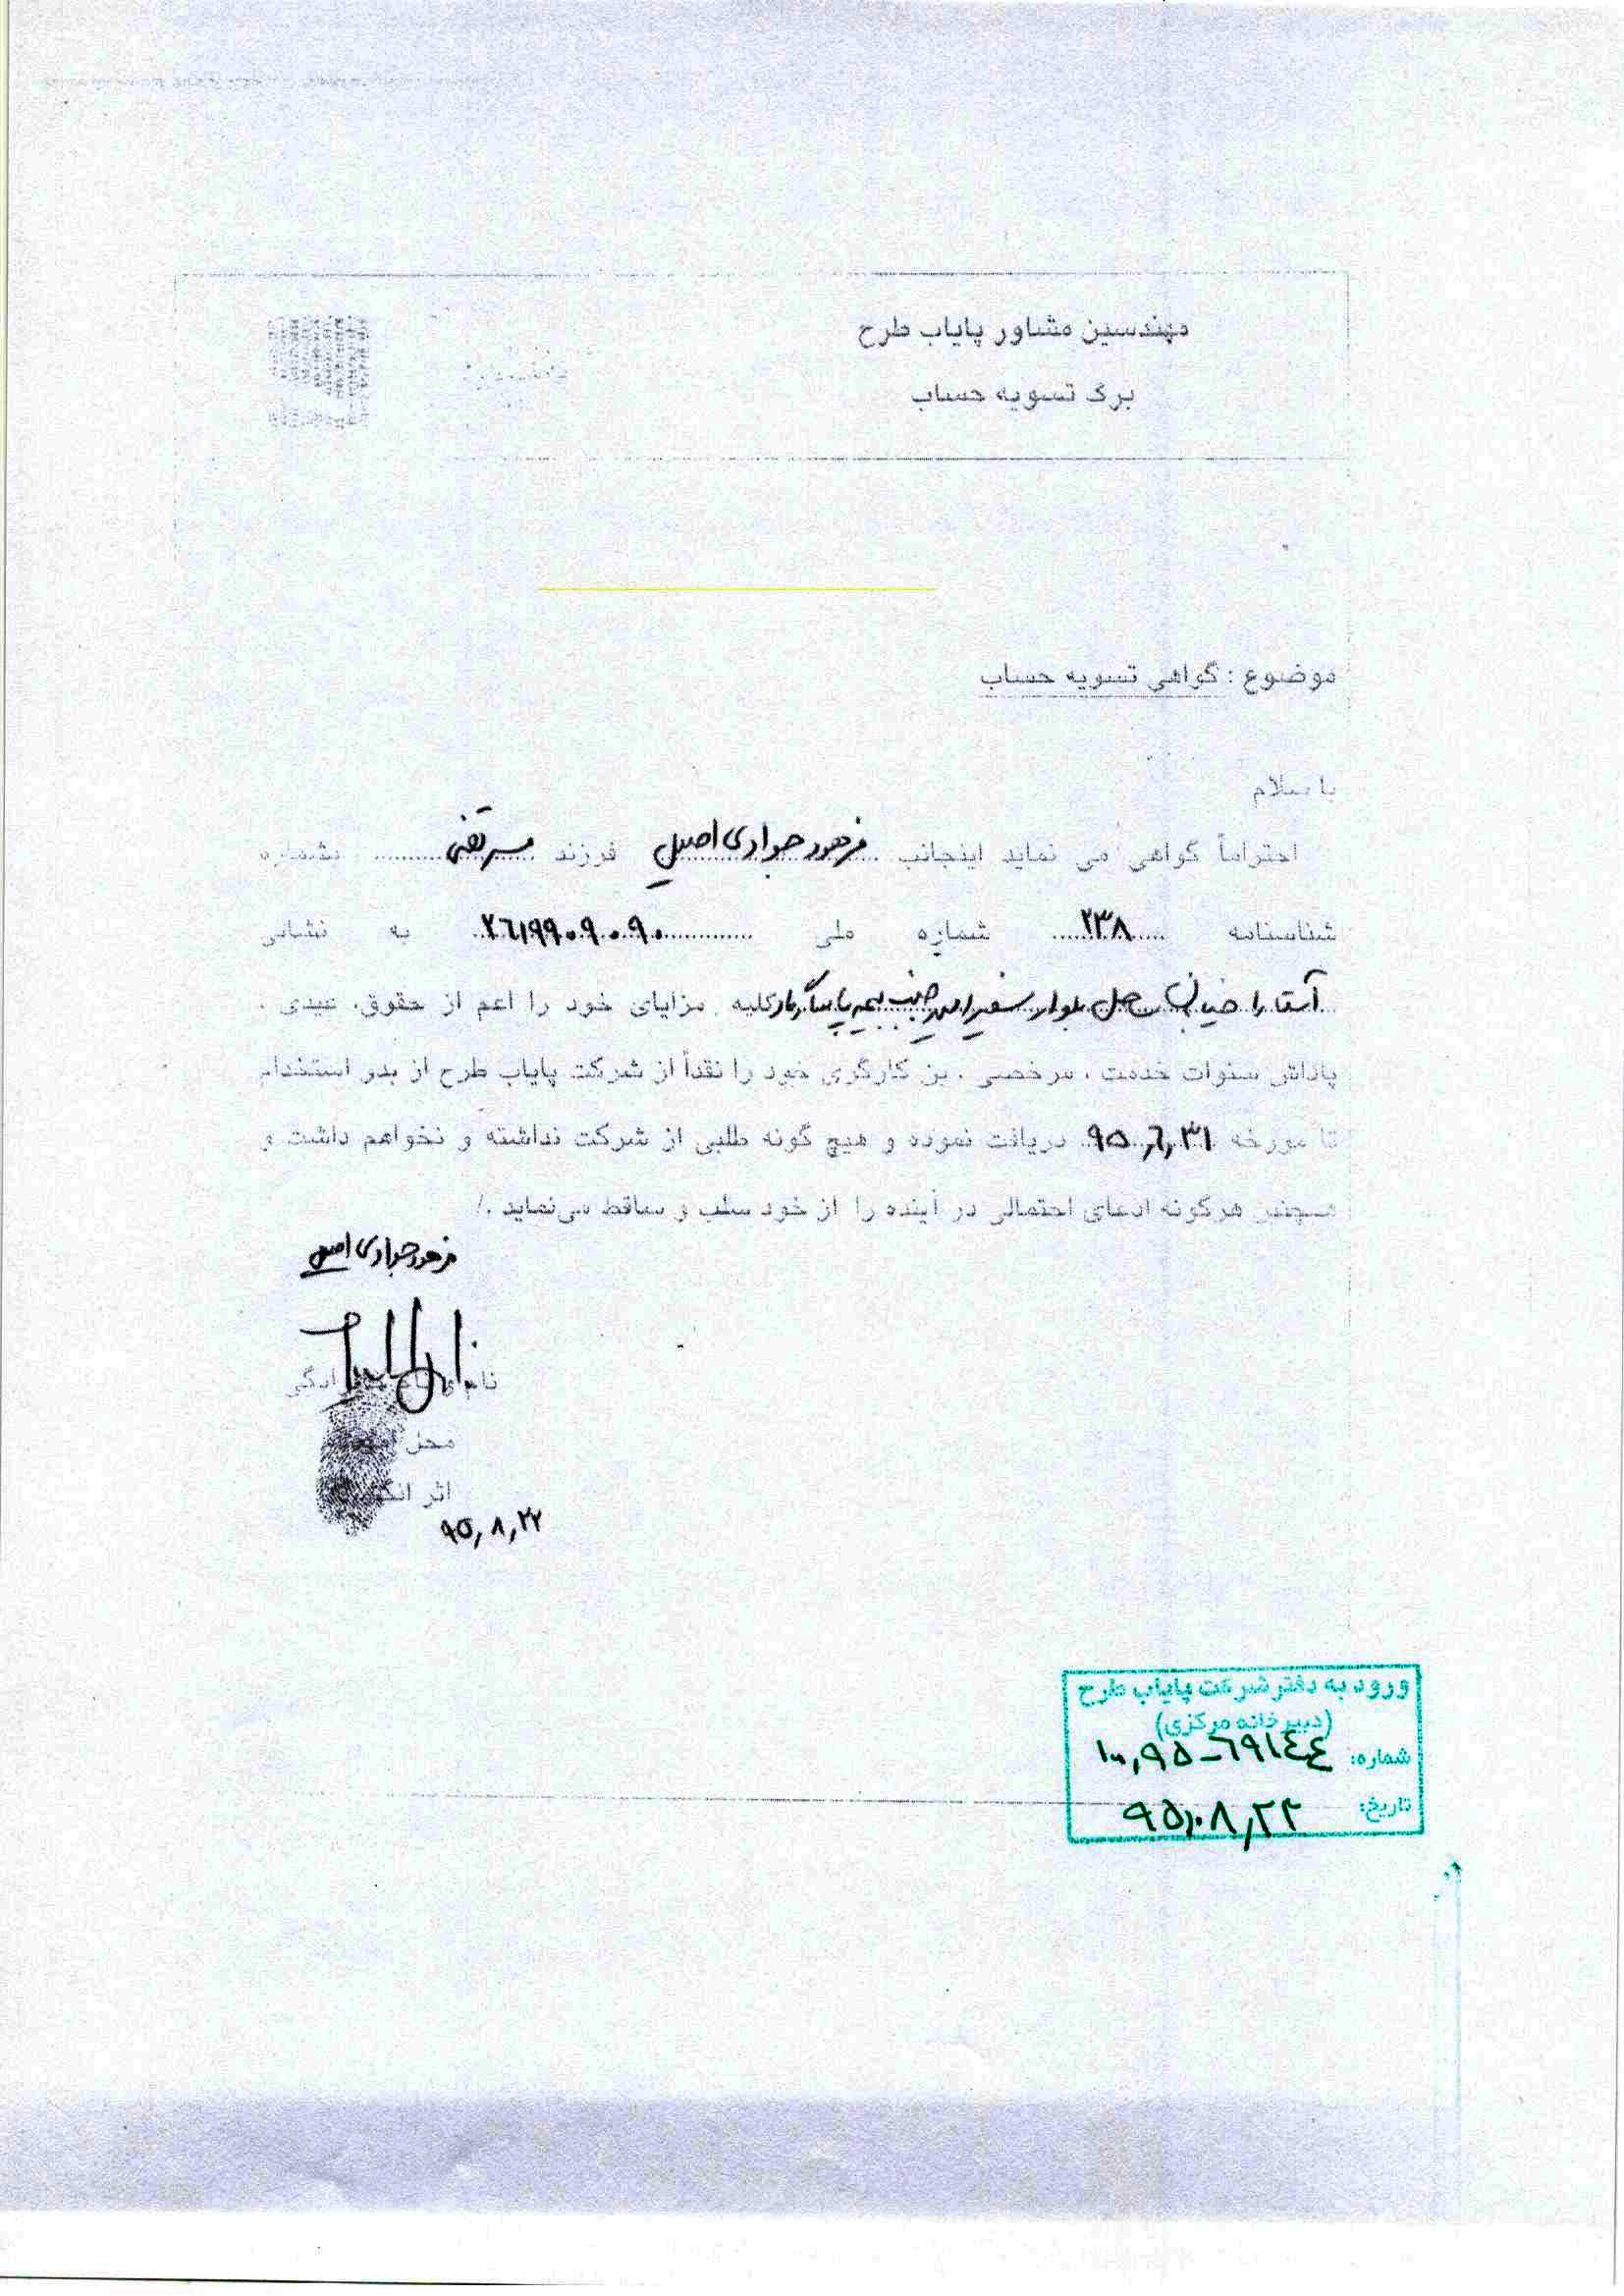 مهندسین مشاور پایاب طرح
برگ تسویه حساب
موضوع : گواهی تسویه حساب
با سلام
احتراماً گواهی می نماید اینجانب فرهود جوادی اصیل فرزند مرتضی بشماره
شناسنامه ۲۳۸ شماره ملی ۲۶۱۹۹۰۹۰۹۰ به نشانی
آستارا خیابان ساحل بلوار سفیر امید جنب بیمه پاسارگاد کلیه مزایای خود را اعم از حقوق، عیدی ،
پاداش سنوات خدمت ، مرخصی ، بن کارگری خود را نقداً از شرکت پایاب طرح از بدو استخدام
تا مورخه ۹۵,۶,۳۱ دریافت نموده و هیچ گونه طلبی از شرکت نداشته و نخواهم داشت و
همچنین هرگونه ادعای احتمالی در آینده را از خود سلب و ساقط می‌نماید ./
فرهود جوادی اصیل
نام و نام خانوادگی
محل امضاء
اثر انگشت
۹۵,۸,۲۲
ورود به دفتر شرکت پایاب طرح
(دبیرخانه مرکزی)
شماره: ۱۰۰,۹۵-۶۹۱۴۴
تاریخ: ۹۵,۰۸,۲۲